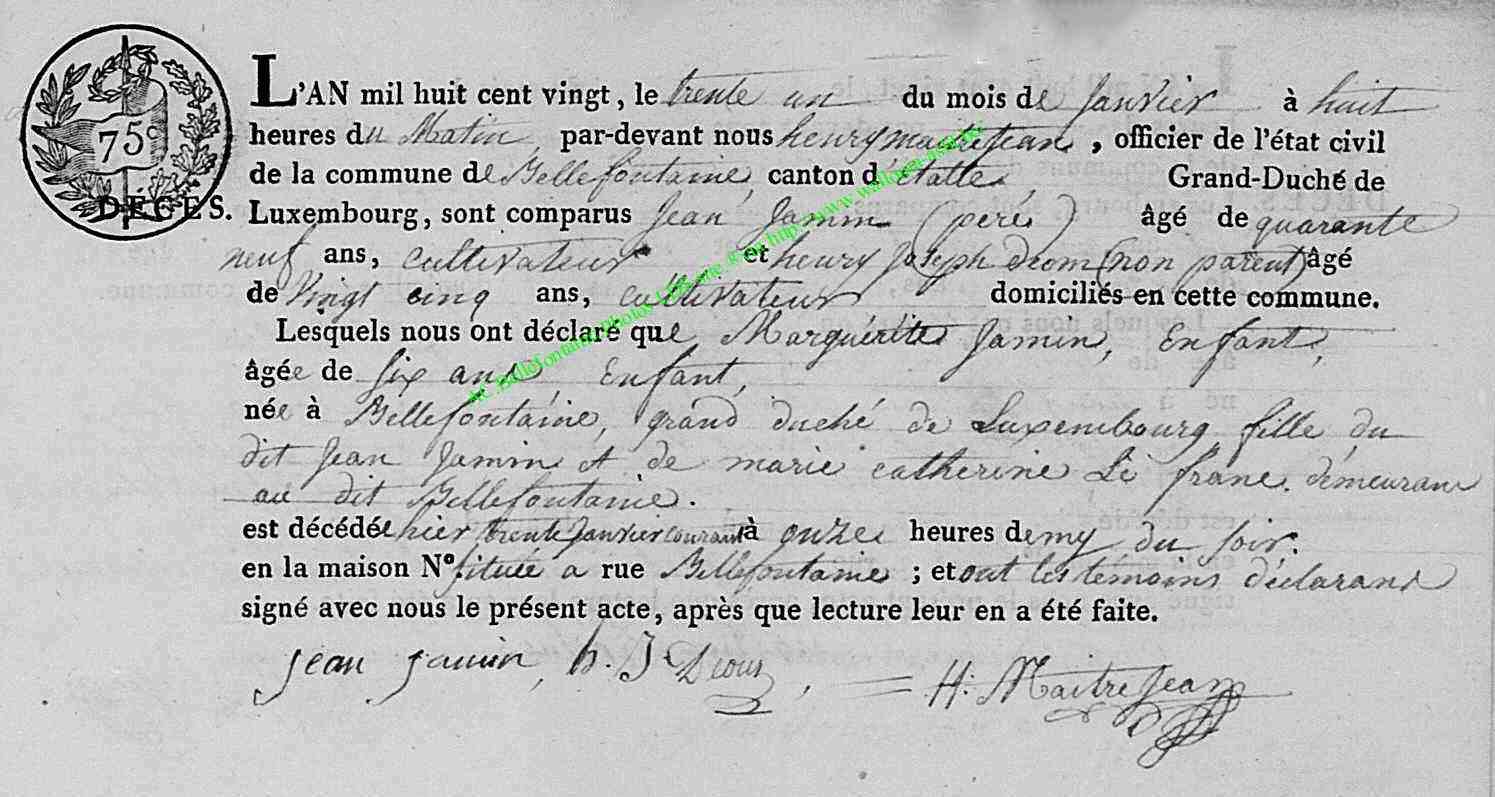 75c
L'AN mil huit cent vingt, le trente un du mois de Janvier à huit
heures du Matin, par-devant nous henry maitrejean, officier de l'état civil
de la commune de Bellefontaine, canton d'étalle, Grand-Duché de
DÉCES. Luxembourg, sont comparus Jean Jamin (peré) âgé de quarante
neuf ans, cultivateur et henry Joseph deom (non parent) âgé
de Vingt cinq ans, cultivateur domiciliés en cette commune.
Lesquels nous ont déclaré que Marguérite Jamin, Enfant,
âgée de six ans Enfant,
née à Bellefontaine, grand duché de Luxembourg, fille du
dit Jean Jamin et de marie catherine Le franc. demeurans
au dit Bellefontaine.
est décédée hier trente Janvier courant à onze heures demy du soir.
en la maison N° située a rue Bellefontaine ; et ont les témoins déclarans
signé avec nous le présent acte, après que lecture leur en a été faite.
Jean Jamin, h. J Deom, H: MaitreJean